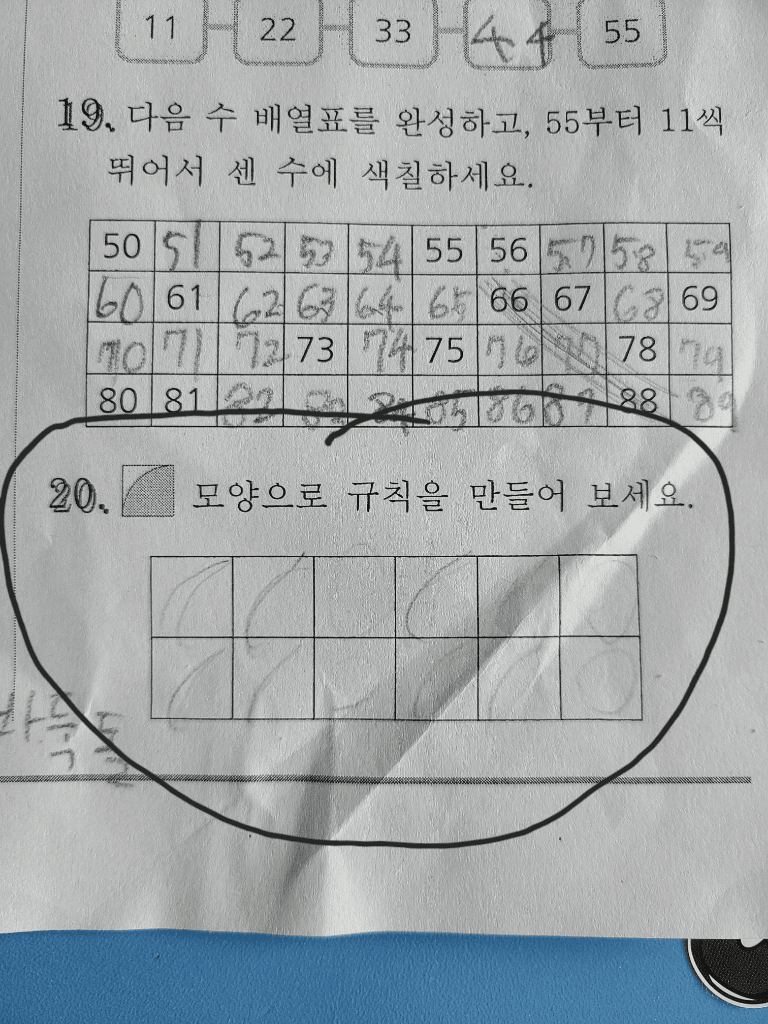 11 22 33 44 55
19. 다음 수 배열표를 완성하고, 55부터 11씩
뛰어서 센 수에 색칠하세요.
50 51 52 53 54 55 56 57 58 59
60 61 62 63 64 65 66 67 68 69
70 71 72 73 74 75 76 77 78 79
80 81 82 83 84 85 86 87 88 89
20. 모양으로 규칙을 만들어 보세요.
바둑돌